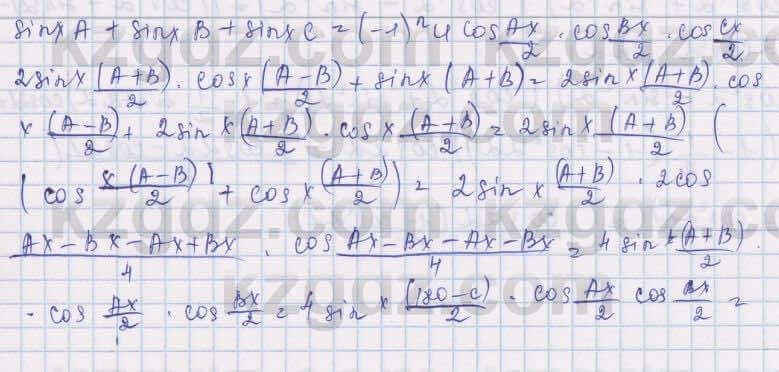 sin x A + sin x B + sin x C = (-1)ⁿ 4 cos Ax/2 · cos Bx/2 · cos Cx/2
2 sin x (A+B)/2 · cos x (A-B)/2 + sin x (A+B) = 2 sin x (A+B)/2 · cos
x (A-B)/2 + 2 sin x (A+B)/2 · cos x (A+B)/2 = 2 sin x (A+B)/2 (
( cos x (A-B)/2 ) + cos x (A+B)/2 ) = 2 sin x (A+B)/2 · 2 cos
Ax - Bx - Ax + Bx/4 · cos Ax - Bx - Ax - Bx/4 = 4 sin x (A+B)/2 ·
· cos Ax/2 · cos Bx/2 = 4 sin x (180-C)/2 · cos Ax/2 cos Bx/2 =
kzgdz.com